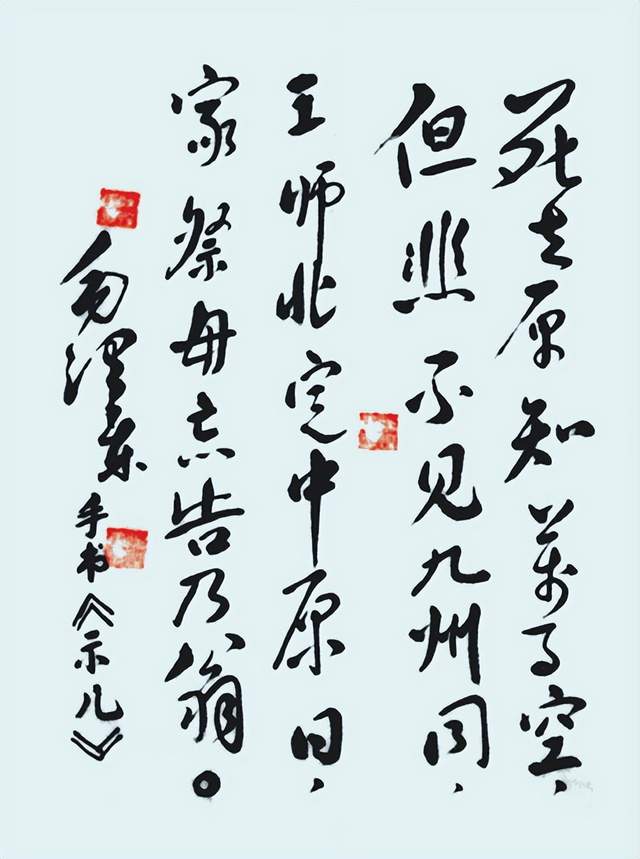 死去原知萬事空、
但悲不见九州同、
王师北定中原日、
家祭毋忘告乃翁。
毛泽东手书《示儿》